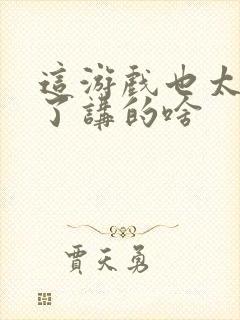 這游戲也太
了講的啥
賈天勇